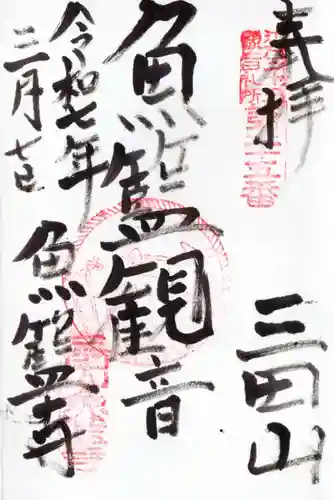 奉拝
第二十五番
三田山
魚籃観音
令和七年
三月七日
魚籃寺